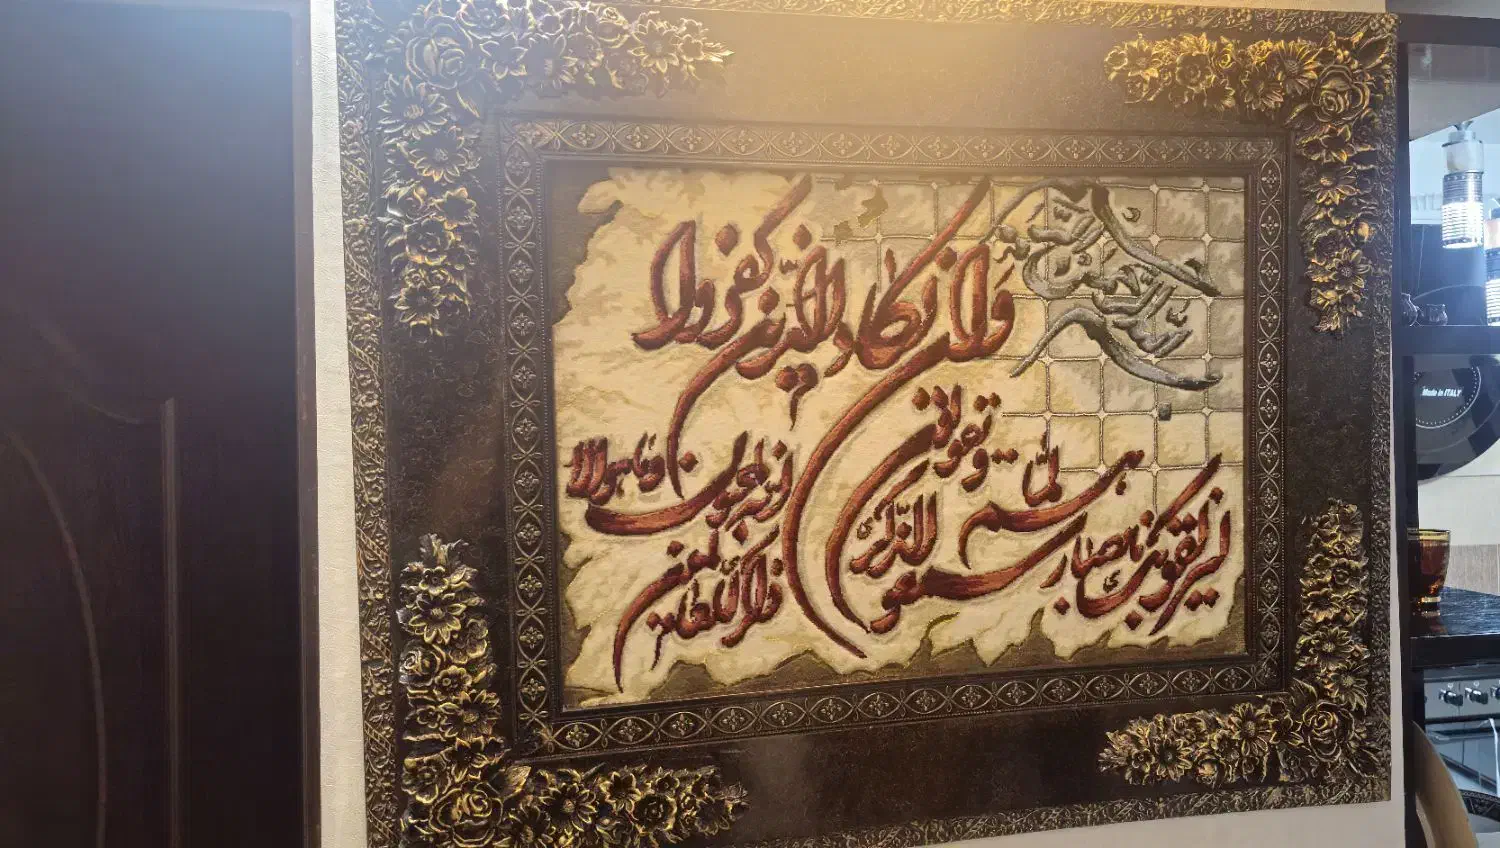 بسم الله الرحمن الرحیم
وان یکاد الذین کفروا
لیزلقونک بابصارهم لما
سمعوا الذکر و یقولون
انه لمجنون وما هو الا
ذکر للعالمین
Made in ITALY